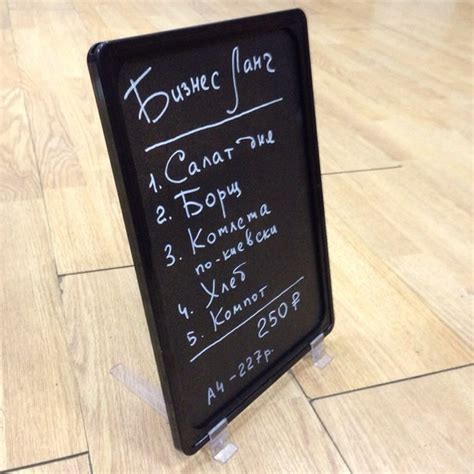 Бизнес Ланч
1. Салат дня
2. Борщ
3. Котлета
по-киевски
4. Хлеб
5. Компот
250₽
А4-227р.